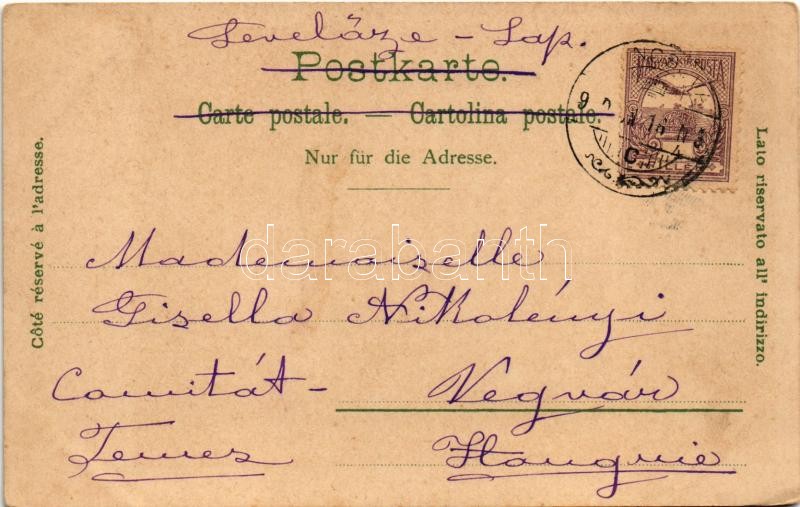 Levelőze - Lap.
Postkarte.
Carte postale. — Cartolina postale.
Nur für die Adresse.
Côté réservé à l'adresse.
Lato riservato all' indirizzo.
MAGYAR KIR. POSTA
darabanth
Mademoiselle
Gisella Nikolényi
Comitát- Vegvár
Temes Hongrie